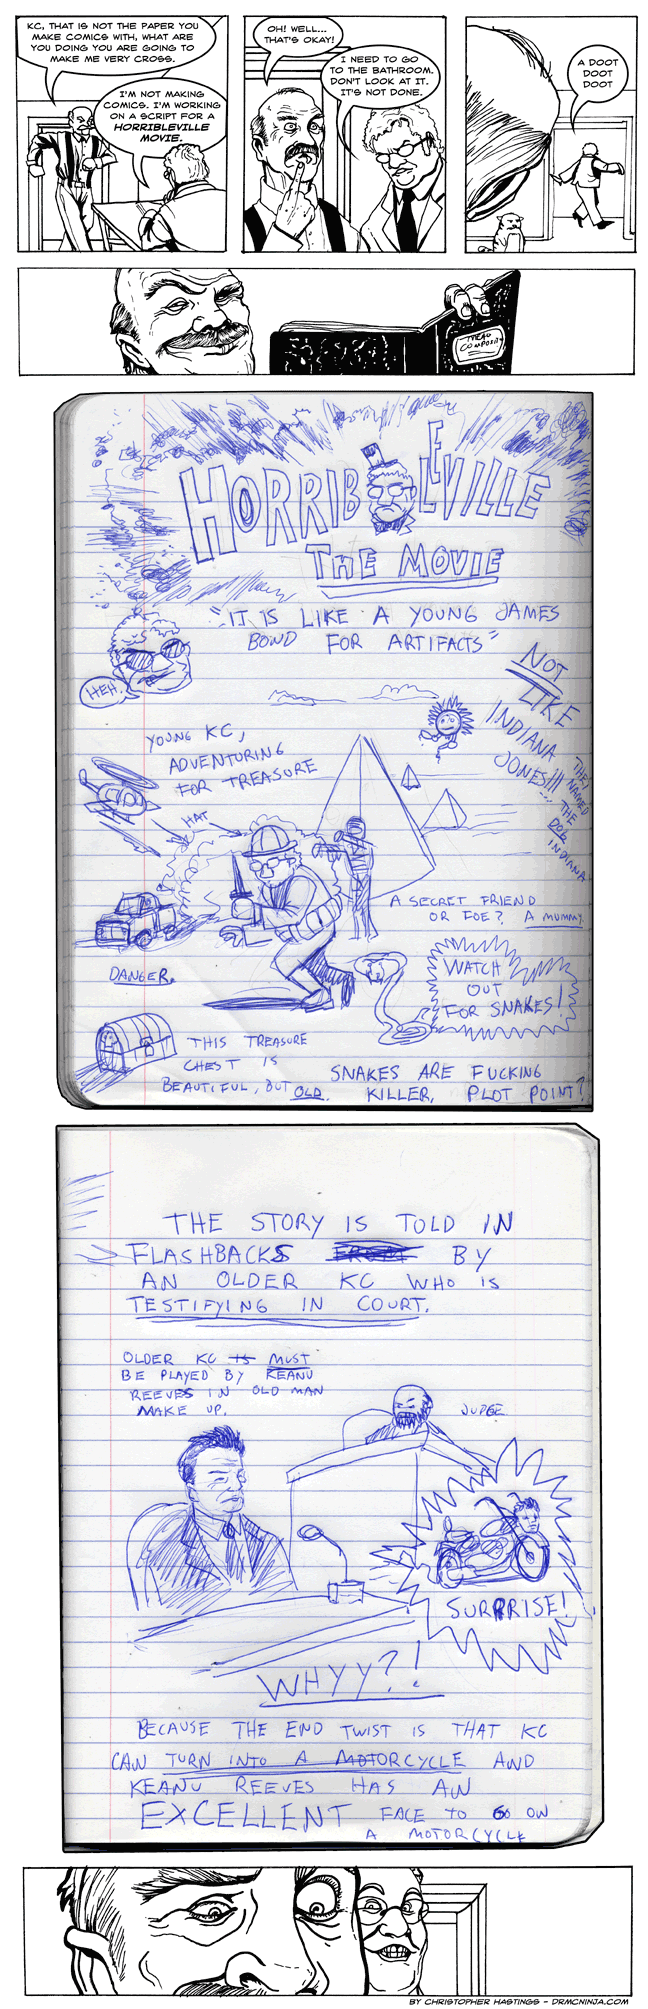 KC, THAT IS NOT THE PAPER YOU
MAKE COMICS WITH, WHAT ARE
YOU DOING YOU ARE GOING TO
MAKE ME VERY CROSS.
I'M NOT MAKING
COMICS. I'M WORKING
ON A SCRIPT FOR A
HORRIBLEVILLE
MOVIE.
OH! WELL...
THAT'S OKAY!
I NEED TO GO
TO THE BATHROOM.
DON'T LOOK AT IT.
IT'S NOT DONE.
A DOOT
DOOT
DOOT
MEAD
HORRIBLEEVILLE
THE MOVIE
"IT IS LIKE A YOUNG JAMES
BOND FOR ARTIFACTS"
HEH.
NOT
LIKE
INDIANA
JONES!!!
THEY
NAMED
THE
DOG
INDIANA
YOUNG KC,
ADVENTURING
FOR TREASURE
HAT
A SECRET FRIEND
OR FOE? A MUMMY
DANGER.
WATCH
OUT
FOR SNAKES!
THIS TREASURE
CHEST IS
BEAUTIFUL, BUT OLD.
SNAKES ARE FUCKING
KILLER, PLOT POINT?
THE STORY IS TOLD IN
FLASHBACKS BY
AN OLDER KC WHO IS
TESTIFYING IN COURT.
OLDER KC IS MUST
BE PLAYED BY KEANU
REEVES IN OLD MAN
MAKE UP.
JUDGE
SURPRISE!
WHYY?!
BECAUSE THE END TWIST IS THAT KC
CAN TURN INTO A MOTORCYCLE AND
KEANU REEVES HAS AN
EXCELLENT FACE TO GO ON
A MOTORCYCLE
BY CHRISTOPHER HASTINGS - DRMCNINJA.COM